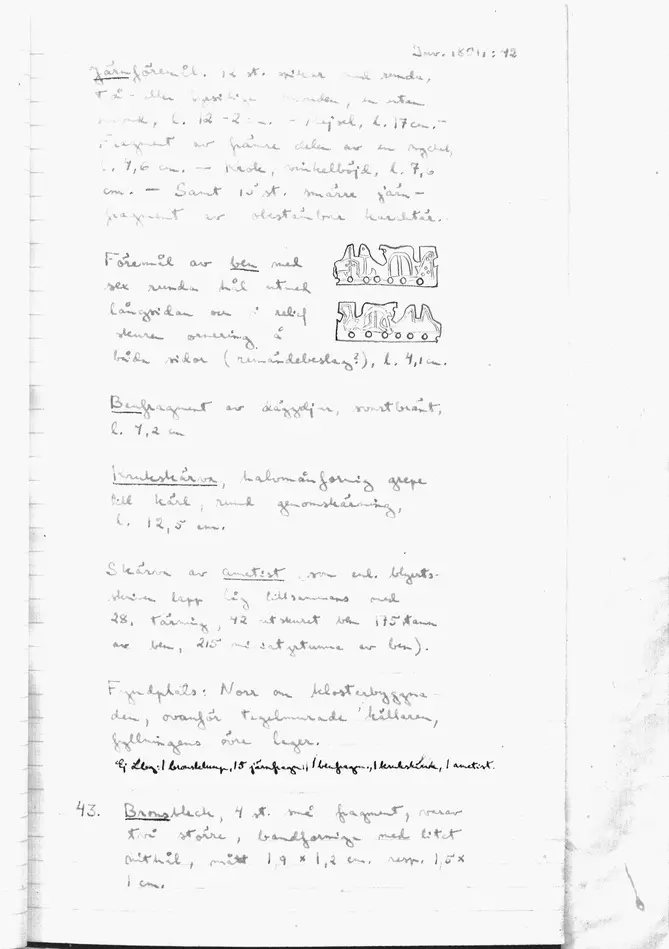 Inv. 18011:42
Järnföremål. 12 st. spikar med runda,
två- eller fyrsidiga, en utan
l. 12 - 2 cm. - Mejsel, l. 17 cm. -
Fragment av främre delen av en nyckel,
l. 4,6 cm. — Krok, vinkelböjd, l. 7,0
cm. — Samt 15 st. smärre järn-
fragment av obestämbar karaktär.
Föremål av ben med
sex runda hål utmed
långsidan och i relief
skuren ornering å
båda sidor (remändebeslag?), l. 4,1 cm.
Benfragment av däggdjur, svartbränt,
l. 7,2 cm
Krukskärva, halvmånformig grepe
till kärl, rund genomskärning,
l. 12,5 cm.
Skärva av ametist, som enl. blyerts-
skriven lapp låg tillsammans med
28. tärning, 42 utskuret ben 175
av ben, 215 av ben).
Fyndplats: Norr om klosterbyggna-
den, ovanför tegelmurade källaren,
fyllningens övre lager.
Ej 1 bronsklump, 15 järnfragm., 1 benfragm., 1 krukskärva, 1 ametist.
43. Bronsbleck, 4 st. små fragment, varav
två större, bandformiga med litet
nithål, mått 1,9 × 1,2 cm. resp. 1,5 ×
1 cm.